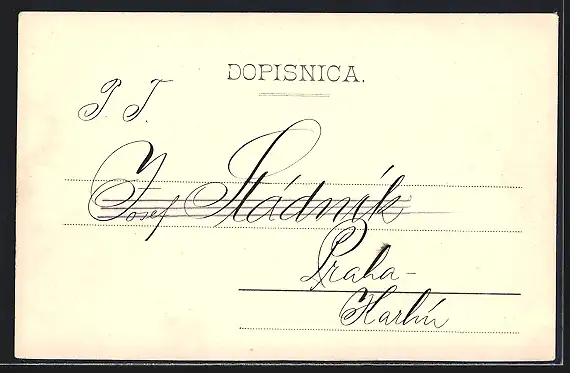 DOPISNICA.
P. T.
Josef Sládník
Praha-
Karlín